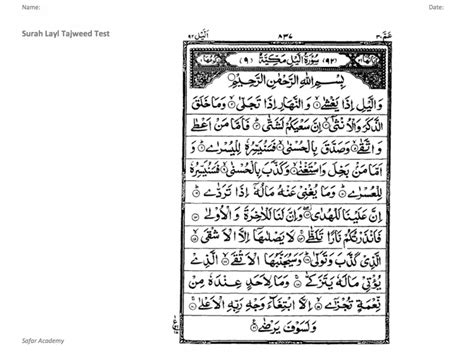 Name: Date:
Surah Layl Tajweed Test
عَمَّ ٣٠ ٨٣٧ اَلَّيْل ٩٢
(٩٢) سُوْرَةُ الَّيْلِ مَكِّيَّةٌ (٩)
بِسْمِ اللهِ الرَّحْمٰنِ الرَّحِيْمِ
وَالَّيْلِ اِذَا يَغْشٰى ۙ وَالنَّهَارِ اِذَا تَجَلّٰى ۙ وَمَا خَلَقَ
الذَّكَرَ وَالْاُنْثٰٓى ۙ اِنَّ سَعْيَكُمْ لَشَتّٰى ؕ فَاَمَّا مَنْ اَعْطٰى
وَاتَّقٰى ۙ وَصَدَّقَ بِالْحُسْنٰى ۙ فَسَنُيَسِّرُهٗ لِلْيُسْرٰى ؕ وَ
اَمَّا مَنْۢ بَخِلَ وَاسْتَغْنٰى ۙ وَكَذَّبَ بِالْحُسْنٰى ۙ فَسَنُيَسِّرُهٗ
لِلْعُسْرٰى ؕ وَمَا يُغْنِيْ عَنْهُ مَالُهٗٓ اِذَا تَرَدّٰى ؕ
اِنَّ عَلَيْنَا لَلْهُدٰى ۖ وَاِنَّ لَنَا لَلْاٰخِرَةَ وَالْاُوْلٰى
فَاَنْذَرْتُكُمْ نَارًا تَلَظّٰى ۚ لَا يَصْلٰىهَآ اِلَّا الْاَشْقَى ۙ
الَّذِيْ كَذَّبَ وَتَوَلّٰى ؕ وَسَيُجَنَّبُهَا الْاَتْقَى ۙ الَّذِيْ
يُؤْتِيْ مَالَهٗ يَتَزَكّٰى ۚ وَمَا لِاَحَدٍ عِنْدَهٗ مِنْ
نِّعْمَةٍ تُجْزٰٓى ۙ اِلَّا ابْتِغَآءَ وَجْهِ رَبِّهِ الْاَعْلٰى ۚ
وَلَسَوْفَ يَرْضٰى
Safar Academy